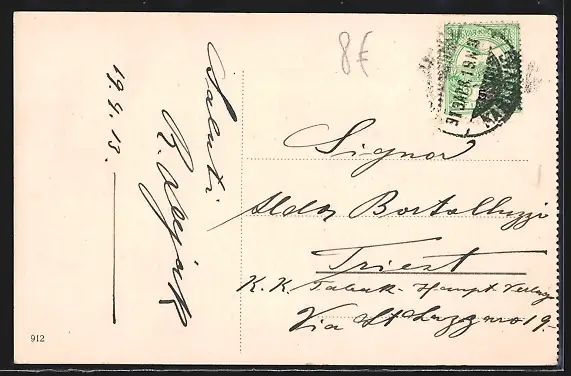 8€
19.4.13.
Saluti
Signor
Aldo Bortoluzzi
Triest
K. K. Tabak-Haupt-Verlag
Via St Lazzaro 19-
912